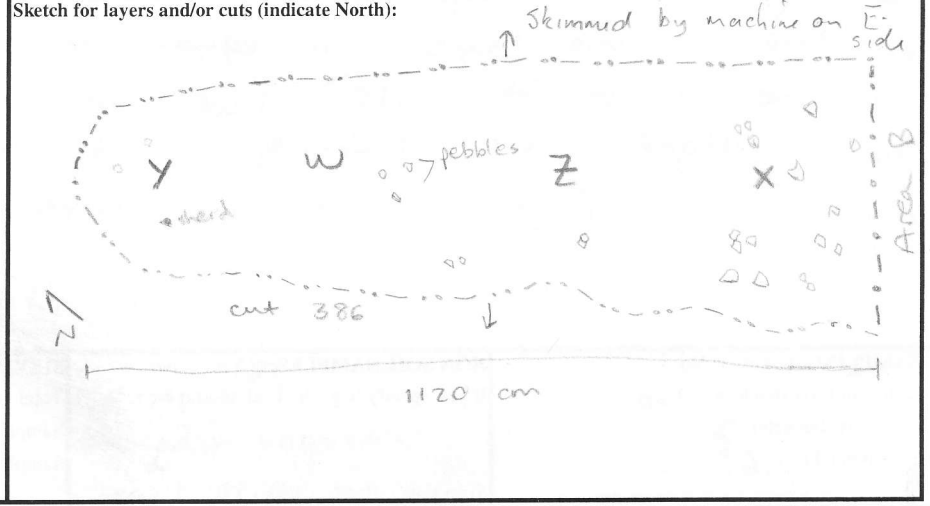 Sketch for layers and/or cuts (indicate North):
Skimmed by machine on E.
side
Y
W
pebbles
Z
X
sherd
Area B
cut 386
N
1120 cm